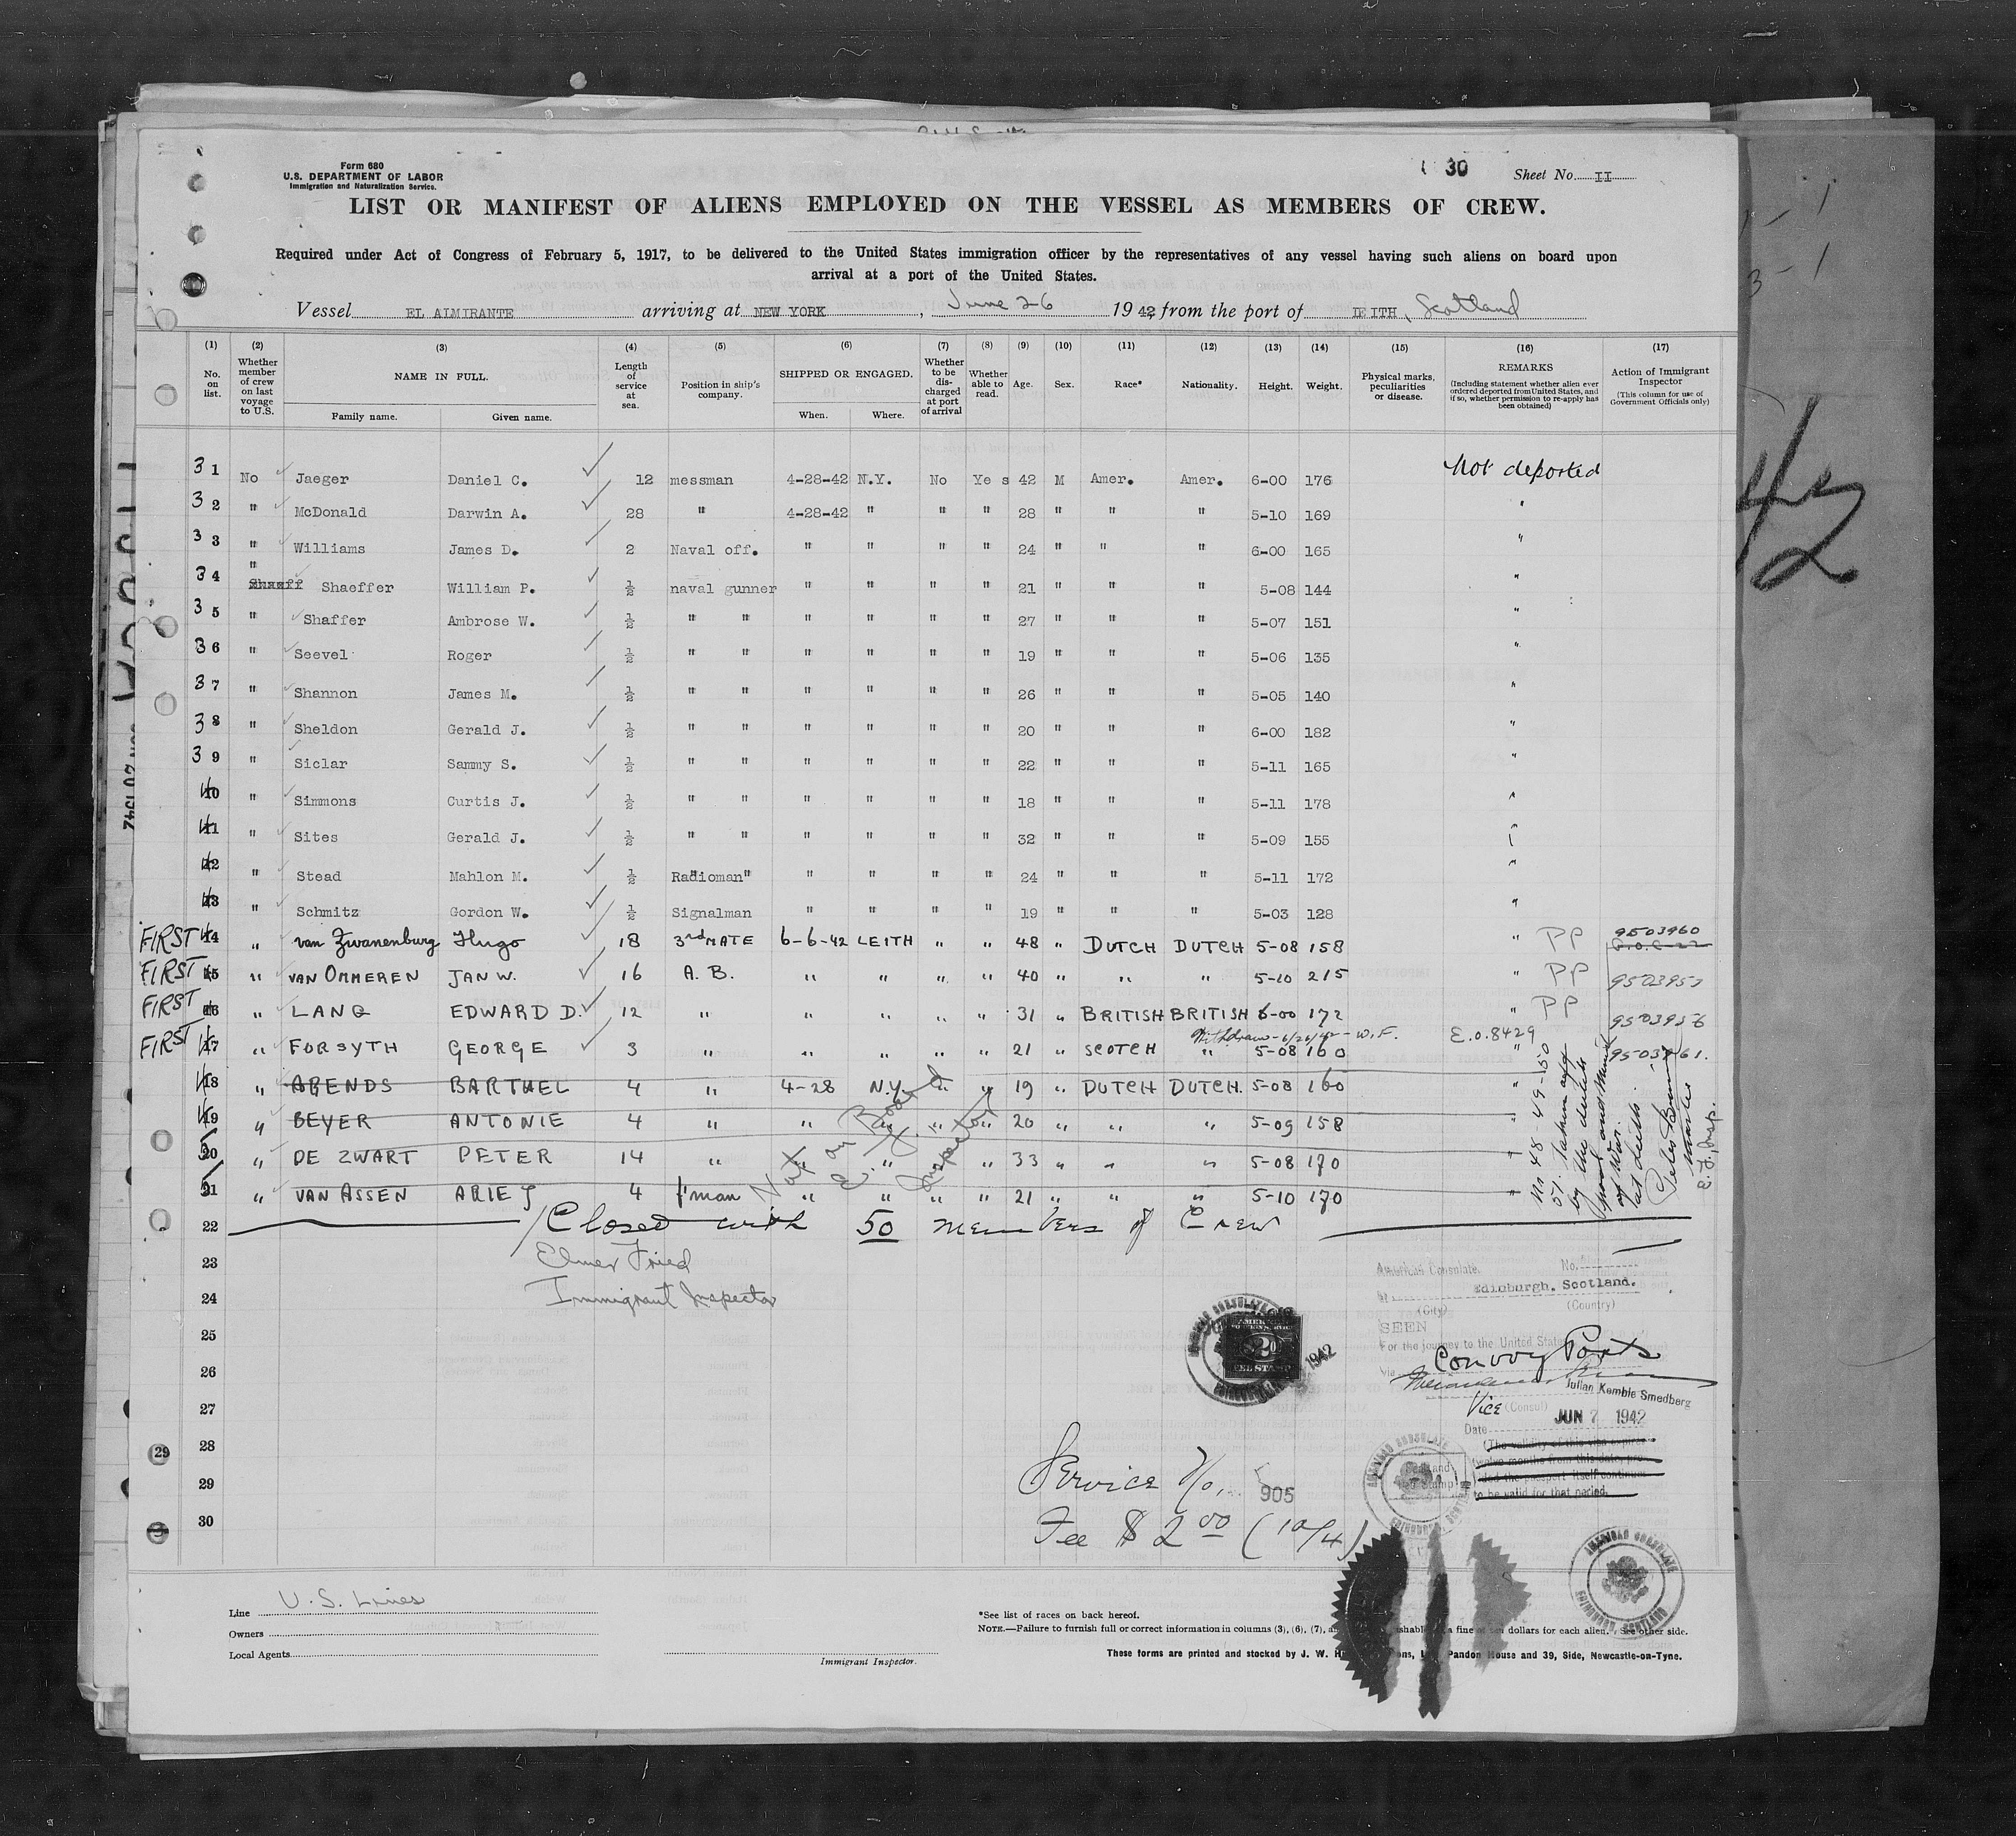 Form 680
U.S. DEPARTMENT OF LABOR
Immigration and Naturalization Service.
30
Sheet No. II
LIST OR MANIFEST OF ALIENS EMPLOYED ON THE VESSEL AS MEMBERS OF CREW.
Required under Act of Congress of February 5, 1917, to be delivered to the United States immigration officer by the representatives of any vessel having such aliens on board upon
arrival at a port of the United States.
Vessel EL ALMIRANTE arriving at NEW YORK, June 26 1942, from the port of LEITH, Scotland
(1) (2) (3) (4) (5) (6) (7) (8) (9) (10) (11) (12) (13) (14) (15) (16) (17)
No. on list.
Whether member of crew on last voyage to U.S.
NAME IN FULL.
Family name. Given name.
Length of service at sea.
Position in ship's company.
SHIPPED OR ENGAGED.
When. Where.
Whether to be discharged at port of arrival
Whether able to read.
Age.
Sex.
Race*
Nationality.
Height.
Weight.
Physical marks, peculiarities or disease.
REMARKS
(Including statement whether alien ever ordered deported from United States, and if so, whether permission to re-apply has been obtained)
Action of Immigrant Inspector
(This column for use of Government Officials only)
31 No Jaeger Daniel C. 12 messman 4-28-42 N.Y. No Yes 42 M Amer. Amer. 6-00 176 Not deported
32 " McDonald Darwin A. 28 " 4-28-42 " " " 28 " " " 5-10 169 "
33 " Williams James D. 2 Naval off. " " " " 24 " " " 6-00 165 "
34 " Shaeff Shaeffer William P. ½ naval gunner " " " " 21 " " " 5-08 144 "
35 " Shaffer Ambrose W. ½ " " " " " " 27 " " " 5-07 151 "
36 " Seevel Roger ½ " " " " " " 19 " " " 5-06 135 "
37 " Shannon James M. ½ " " " " " " 26 " " " 5-05 140 "
38 " Sheldon Gerald J. ½ " " " " " " 20 " " " 6-00 182 "
39 " Siclar Sammy S. ½ " " " " " " 22 " " " 5-11 165 "
40 " Simmons Curtis J. ½ " " " " " " 18 " " " 5-11 178 "
41 " Sites Gerald J. ½ " " " " " " 32 " " " 5-09 155 "
42 " Stead Mahlon M. ½ Radioman " " " " 24 " " " 5-11 172 "
43 " Schmitz Gordon W. ½ Signalman " " " " 19 " " " 5-03 128 "
FIRST 44 " van Zwanenburg Hugo 18 3rd MATE 6-6-42 LEITH " " 48 " DUTCH DUTCH 5-08 158 " PP 9503960
FIRST 45 " VAN OMMEREN JAN W. 16 A. B. " " " " 40 " " " 5-10 215 " PP
FIRST 46 " LANG EDWARD D. 12 " " " " " 31 " BRITISH BRITISH 6-00 172 " PP 9503956
Withdrawn-6/26/42-W.F. E.O.8429
FIRST 47 " FORSYTH GEORGE 3 " " " " " 21 " SCOTCH " 5-08 160 " 9503961.
48 " ARENDS BARTHEL 4 " 4-28 N.Y. " " 19 " DUTCH DUTCH. 5-08 160 "
49 " BEYER ANTONIE 4 " " " " " 20 " " " 5-09 158 "
50 " DE ZWART PETER 14 " " " " 33 " " " 5-08 170 "
51 " VAN ASSEN ARIE J 4 f'man " " " " 21 " " " 5-10 170 "
Not on Board
E. F.
Inspector
No 48-49-50
51. taken off
by the dutch
of War.
at Leith.
E. F., Insp.
22 Closed with 50 members of Crew
23 Elmer Fried
24 Immigrant Inspector
25
26
27
28
29
30
American Consulate. No.
Edinburgh. Scotland.
(City) (Country)
SEEN
For the journey to the United States
Via Convoy Ports
Julian Kemble Smedberg
Vice (Consul)
Date JUN 7 1942
(The validity of this visa expires
twelve months from this date, pro-
vided the passport itself continues
to be valid for that period.
AMERICAN CONSULATE
EDINBURGH
1942
Service No. 905
Fee $ 2 00 (10/4)
29
Line U. S. Lines
Owners
Local Agents
Immigrant Inspector.
*See list of races on back hereof.
NOTE.—Failure to furnish full or correct information in columns (3), (6), (7), a fine of ten dollars for each alien. See other side.
These forms are printed and stocked by J. W. Pandon House and 39, Side, Newcastle-on-Tyne.
42